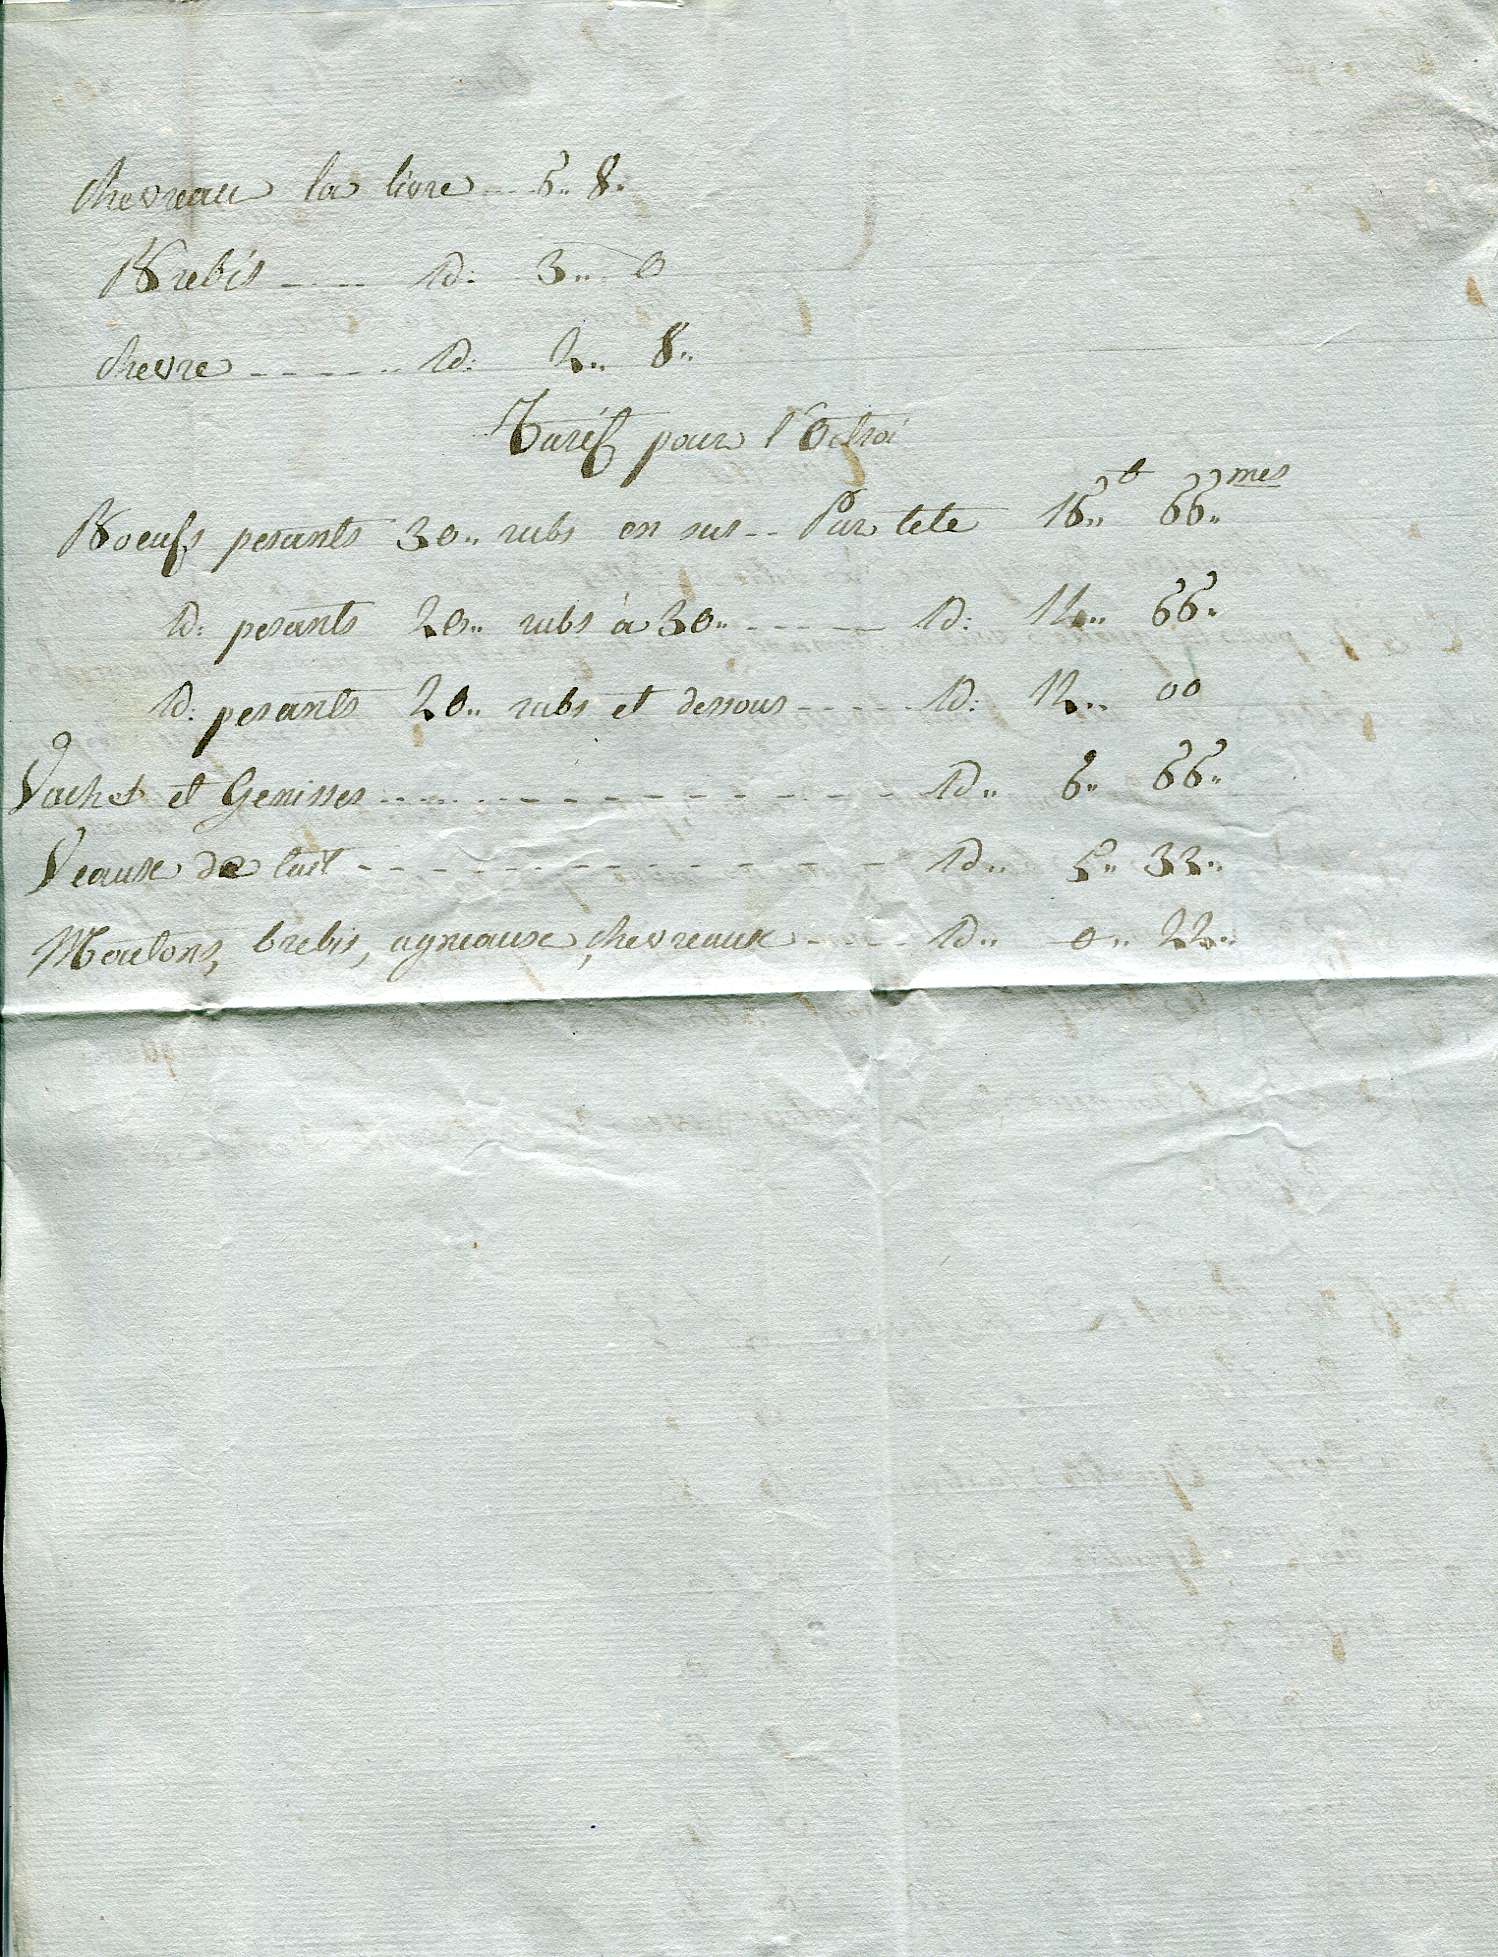 chevreau la livre --- 5.. 8..
Brebis ----- Id: 3.. 0
chevre ------ Id: 2.. 8..
Tarif pour l'Octroi
Boeufs pesants 30.. rubs en sus -- Par tete 16..# 66..mes
Id: pesants 20.. rubs à 30.. ----- Id: 14.. 66..
Id: pesants 20.. rubs et dessous ----- Id: 12.. 00
Vaches et Genisses ----- Id.. 6.. 66..
Veaux de lait ----- Id.. 5.. 33..
Moutons, brebis, agneaux, chevreaux ----- Id.. 0.. 22..